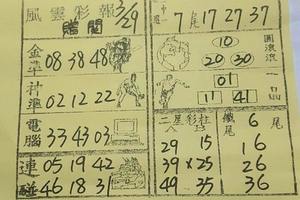 風雲彩報 3/29
贈閱
金準 08 38 48
神準 02 12 22
電腦 33 43 03
連碰 05 19 42
46 18 31
7尾 17 27 37
10 圓滾滾
20 30
01
11 41
二星彩柱 鐵尾 6
29 15 16
39 × 25 26
49 35 36